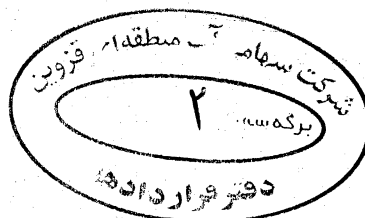 شرکت سهامی آب منطقه‌ای قزوین
برگه
۲
دفتر قراردادها